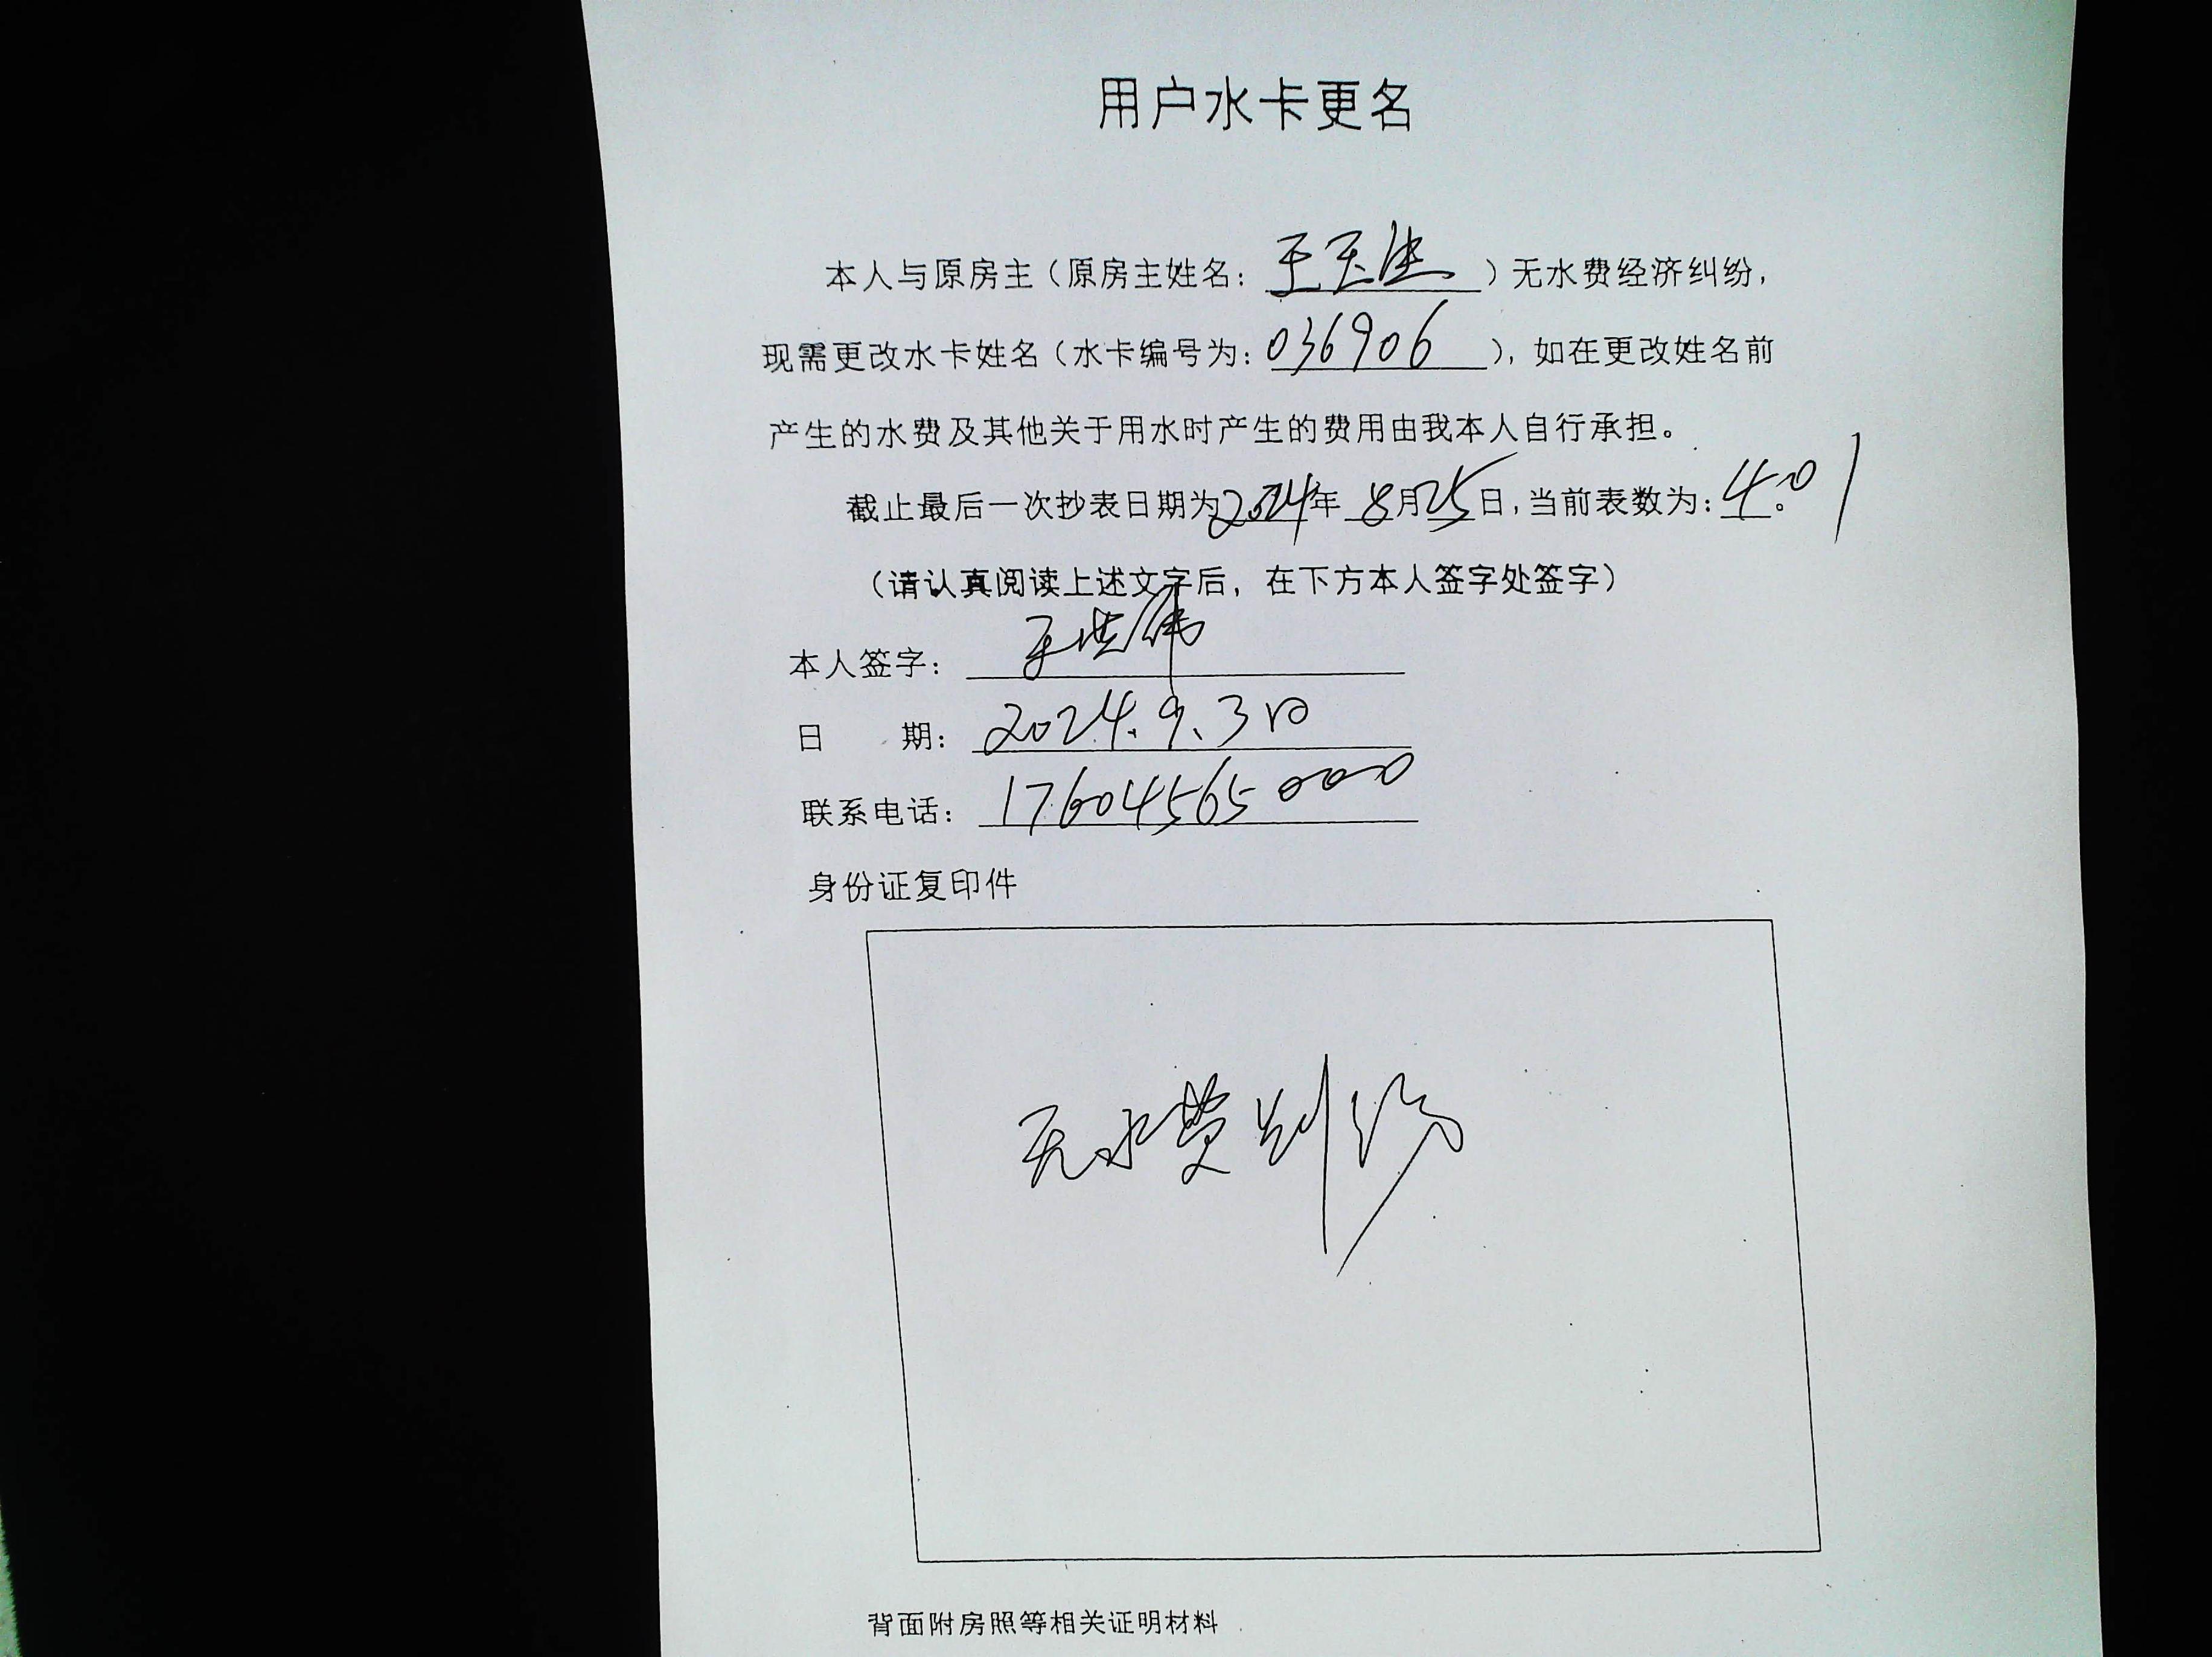 用户水卡更名
本人与原房主（原房主姓名：王玉）无水费经济纠纷，
现需更改水卡姓名（水卡编号为：036906），如在更改姓名前
产生的水费及其他关于用水时产生的费用由我本人自行承担。
截止最后一次抄表日期为2024年8月25日，当前表数为：401。
（请认真阅读上述文字后，在下方本人签字处签字）
本人签字：
日 期：2024.9.3日
联系电话：17604565000
身份证复印件
无水费纠纷
背面附房照等相关证明材料